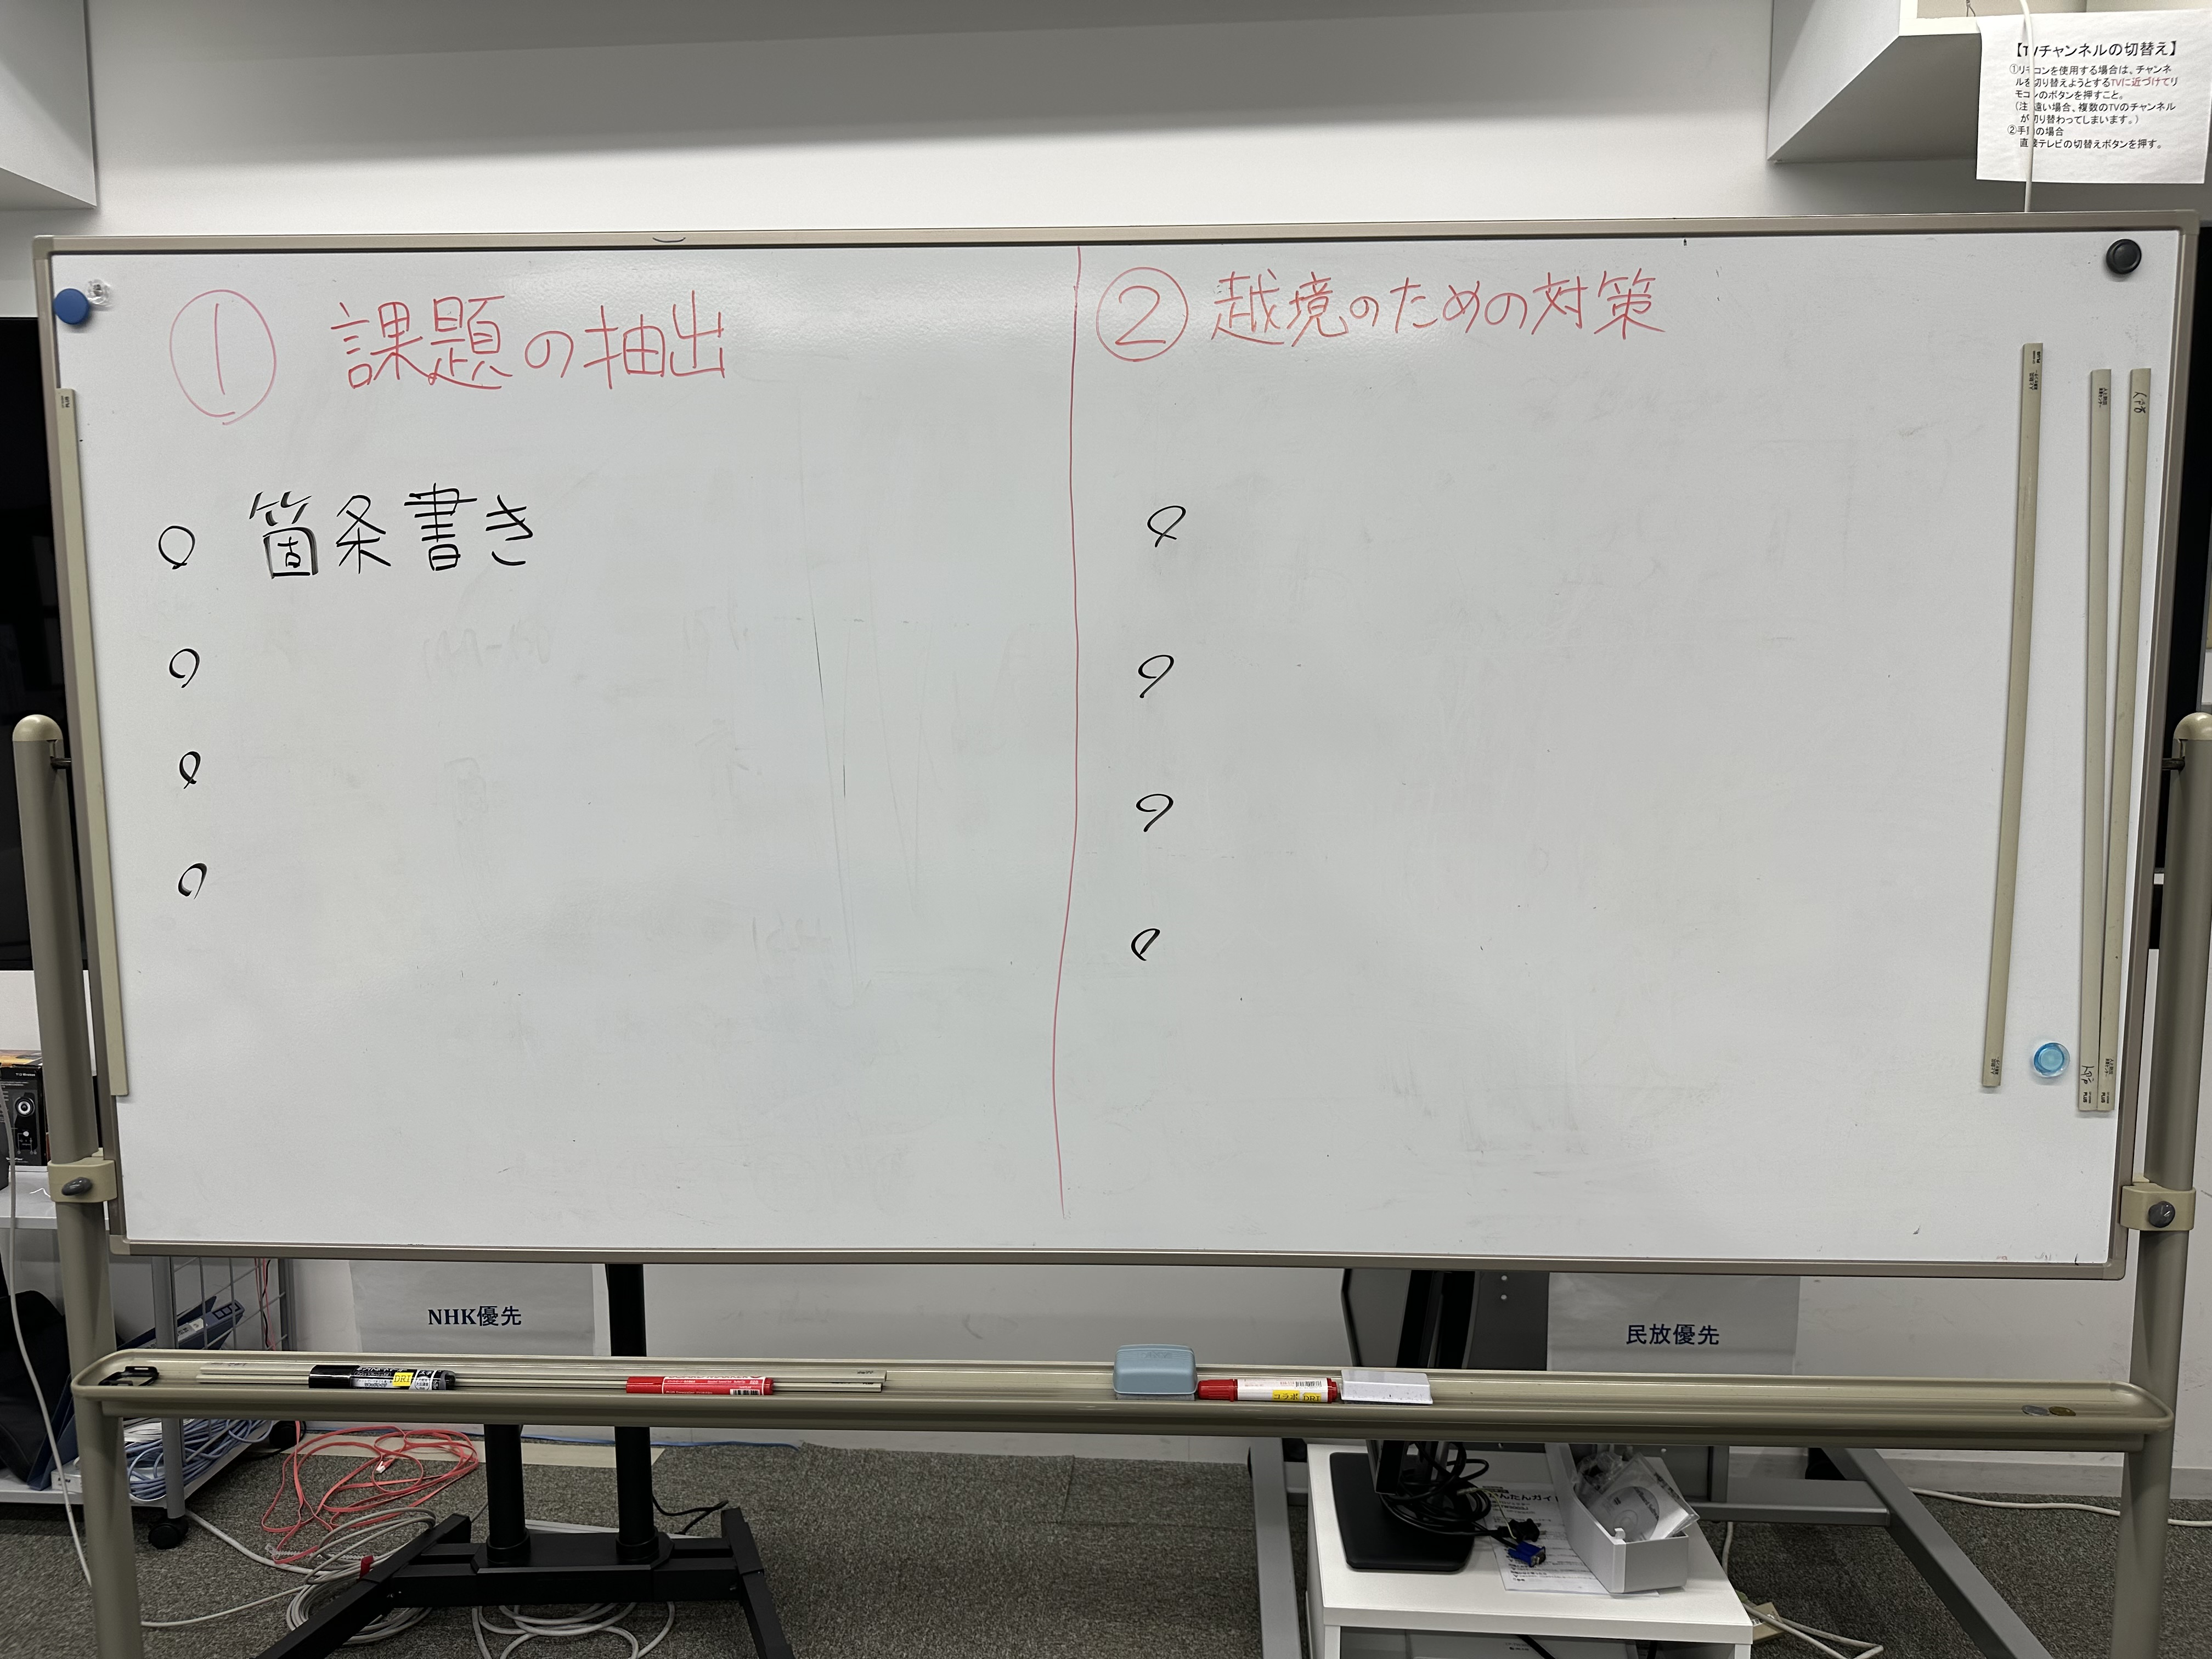 【TVチャンネルの切替え】
①リモコンを使用する場合は、チャンネ
ルを切り替えようとするTVに近づけてリ
モコンのボタンを押すこと。
(注 遠い場合、複数のTVのチャンネル
が切り替わってしまいます。)
②手動の場合
直接テレビの切替えボタンを押す。
① 課題の抽出
○ 箇条書き
○
○
○
② 越境のための対策
○
○
○
○
NHK優先
民放優先
DRI
コラボ DRI
PLUS
PLUS
PLUS
PLUS